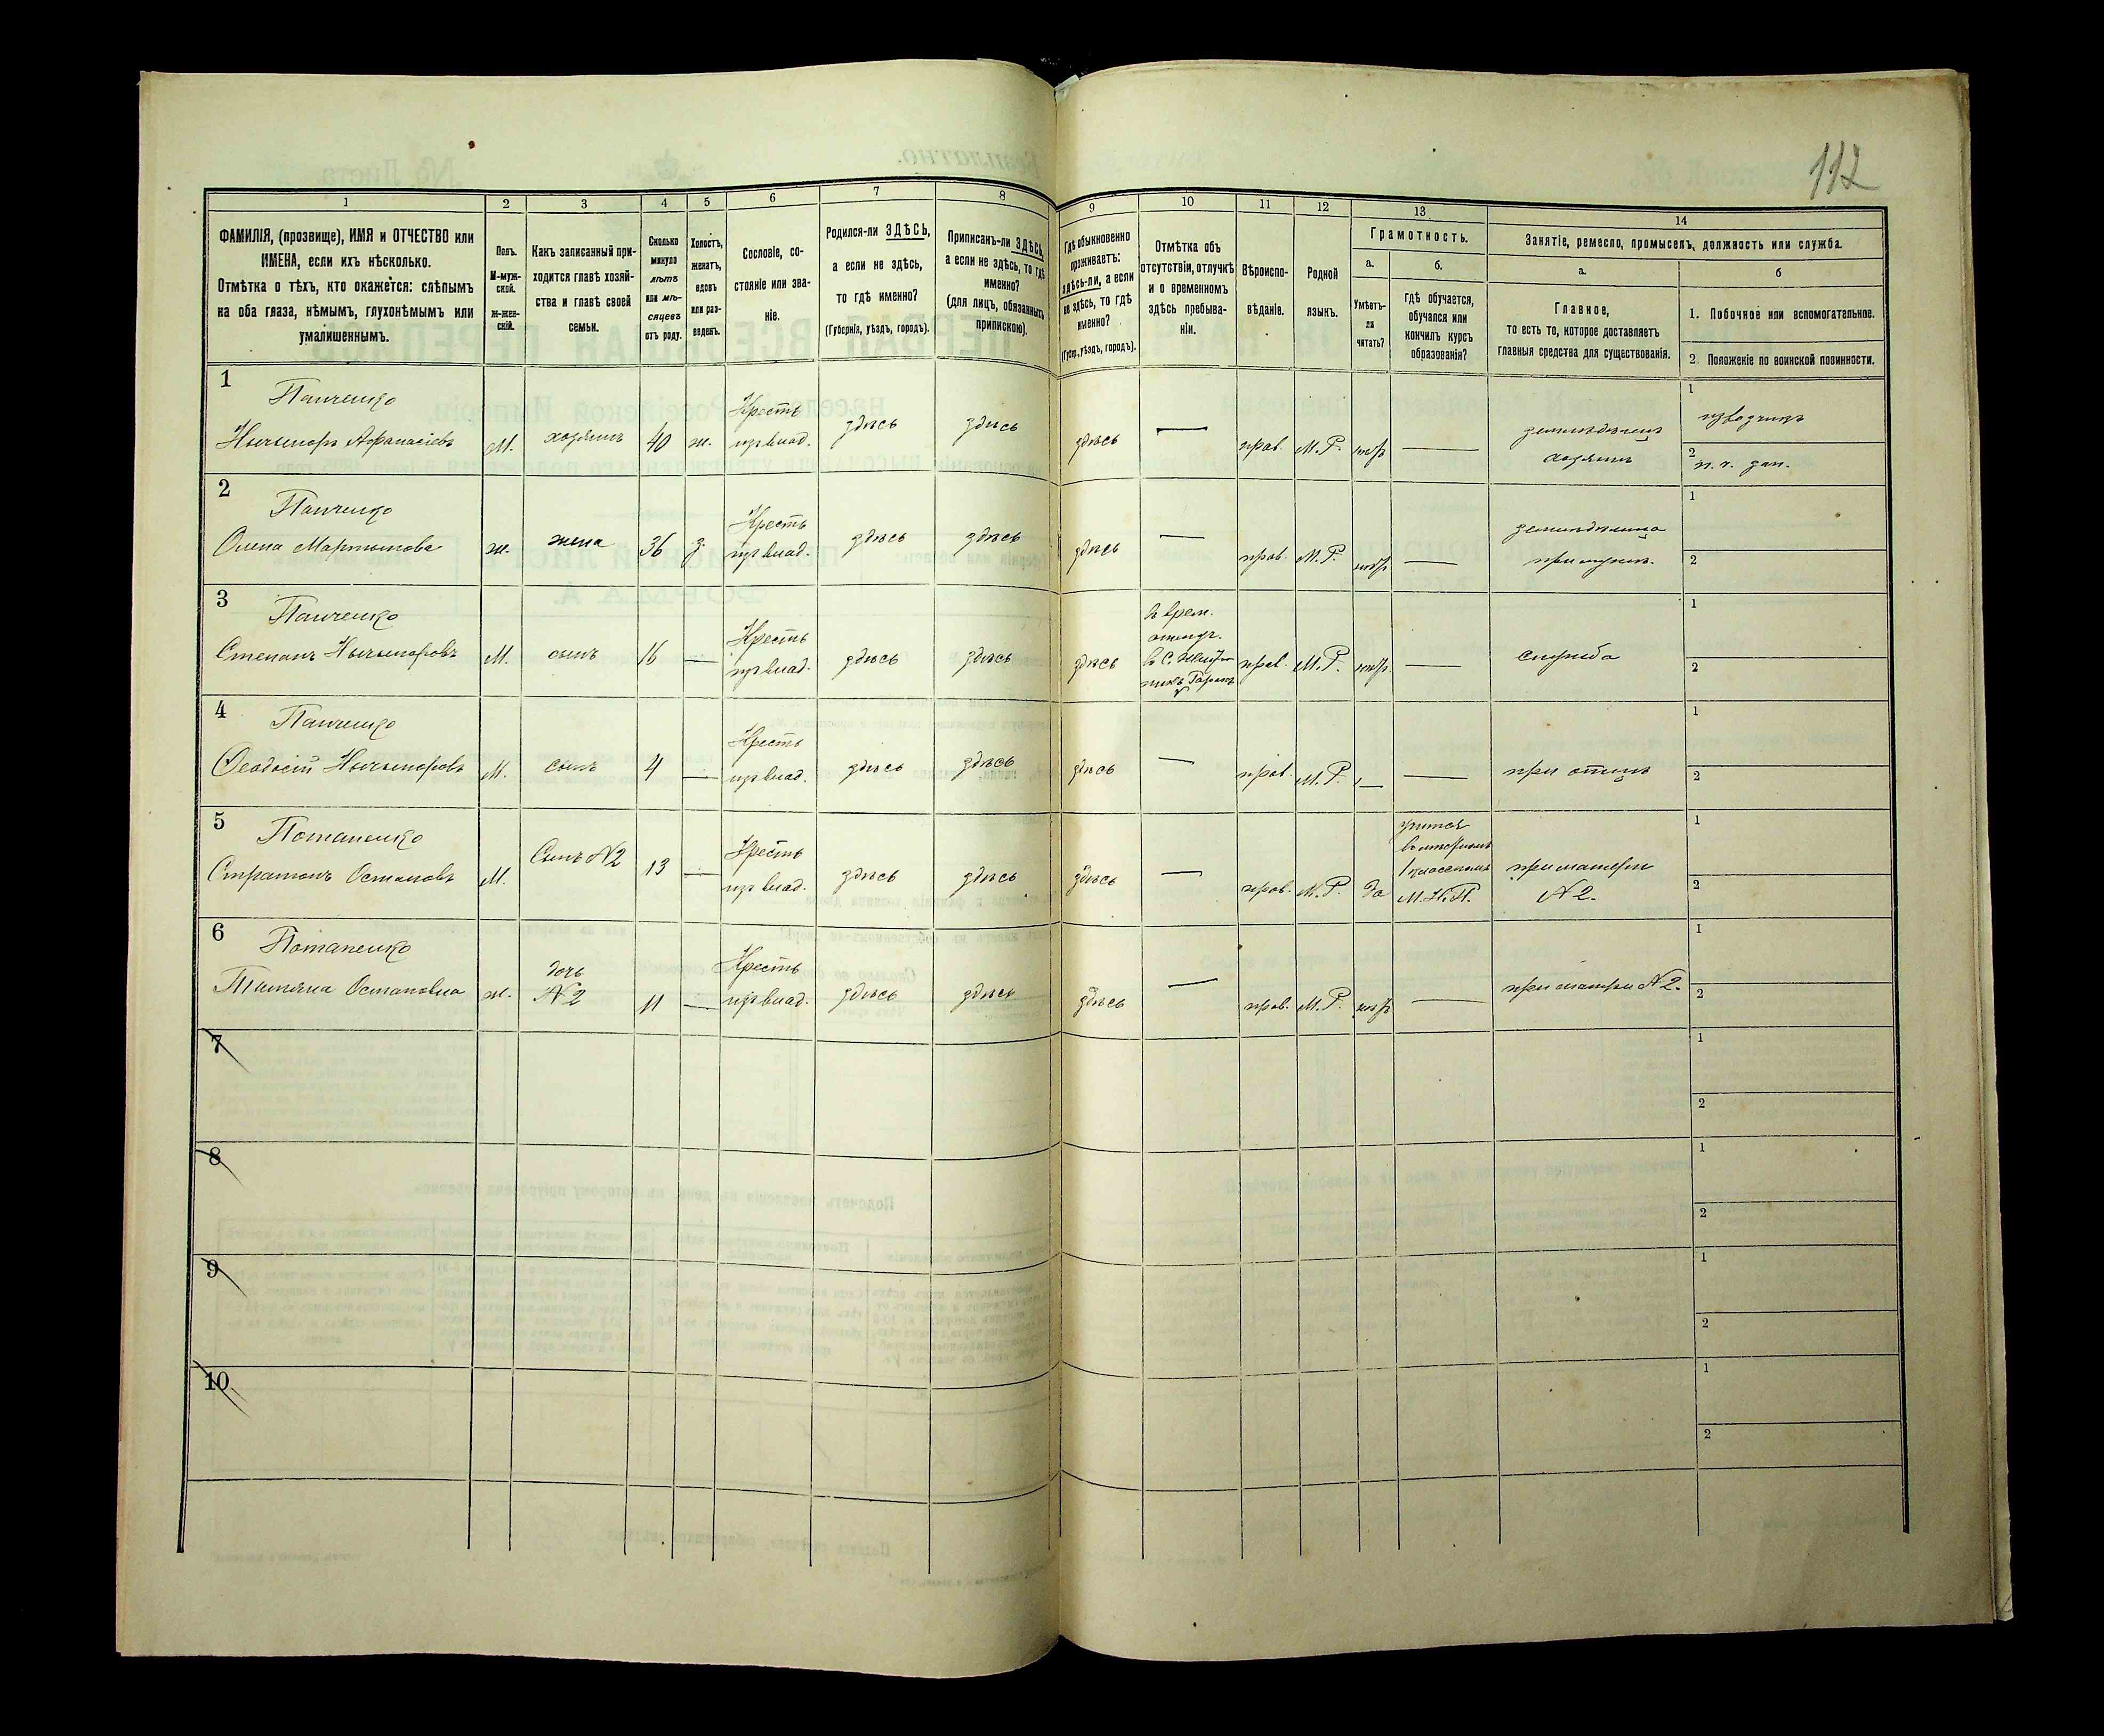 112
1 2 3 4 5 6 7 8 9 10 11 12 13 14
ФАМИЛІЯ, (прозвище), ИМЯ и ОТЧЕСТВО или
ИМЕНА, если ихъ нѣсколько.
Отмѣтка о тѣхъ, кто окажется: слѣпымъ
на оба глаза, нѣмымъ, глухонѣмымъ или
умалишеннымъ.
Полъ.
М-муж-
ской.
Ж-жен-
скій.
Какъ записанный при-
ходится главѣ хозяй-
ства и главѣ своей
семьи.
Сколько
минуло
лѣтъ
или мѣ-
сяцевъ
отъ роду.
Холостъ,
женатъ,
вдовъ
или раз-
веденъ.
Сословіе, со-
стояніе или зва-
ніе.
Родился-ли ЗДѢСЬ,
а если не здѣсь,
то гдѣ именно?
(Губернія, уѣздъ, городъ).
Приписанъ-ли ЗДѢСЬ,
а если не здѣсь, то гдѣ
именно?
(для лицъ, обязанныхъ
припискою).
Гдѣ обыкновенно
проживаетъ:
здѣсь-ли, а если
не здѣсь, то гдѣ
именно?
(Губер., уѣздъ, городъ).
Отмѣтка объ
отсутствіи, отлучкѣ
и о временномъ
здѣсь пребыва-
ніи.
Вѣроиспо-
вѣданіе.
Родной
языкъ.
Грамотность.
а.
Умѣетъ-
ли
читать?
б.
Гдѣ обучается,
обучался или
кончилъ курсъ
образованія?
Занятіе, ремесло, промыселъ, должность или служба.
а.
Главное,
то есть то, которое доставляетъ
главныя средства для существованія.
б
1. Побочное или вспомогательное.
2 Положеніе по воинской повинности.
1
Панченко
Ныкыпоръ Афанасіевъ
М.
хозяинъ
40
ж.
Крестъ
изъ влад.
здѣсь
здѣсь
здѣсь
—
прав.
М. Р.
нѣтъ
—
земледѣлецъ
хозяинъ
1
извозчикъ
2
н. ч. зап.
2
Панченко
Олена Мартынова
ж.
жена
36
з.
Крестъ
изъ влад.
здѣсь
здѣсь
здѣсь
—
прав.
М. Р.
нѣтъ
—
при мужѣ.
1
2
3
Панченко
Степанъ Ныкыпоровъ
М.
сынъ
16
—
Крестъ
изъ влад.
здѣсь
здѣсь
здѣсь
прав.
М. Р.
нѣтъ
—
служба
1
2
4
Панченко
Феодосій Ныкыпоровъ
М.
сынъ
4
—
Крестъ
изъ влад.
здѣсь
здѣсь
здѣсь
—
прав.
М. Р.
—
—
при отцѣ
1
2
5
Потапенко
Стратонъ Остаповъ
М.
Сынъ №2
13
—
Крестъ
изъ влад.
здѣсь
здѣсь
здѣсь
—
прав.
М. Р.
да
учится
1 классномъ
М. Н. П.
при матери
№ 2.
1
2
6
Потапенко
Татьяна Остаповна
ж.
дочь
№ 2
11
—
Крестъ
изъ влад.
здѣсь
здѣсь
здѣсь
—
прав.
М. Р.
нѣтъ
—
при матери № 2.
1
2
7
1
2
8
1
2
9
1
2
10
1
2